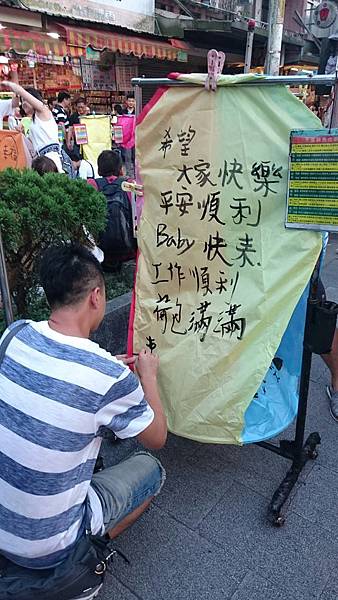 希望
大家快樂
平安順利
Baby 快來
工作順利
荷包滿滿